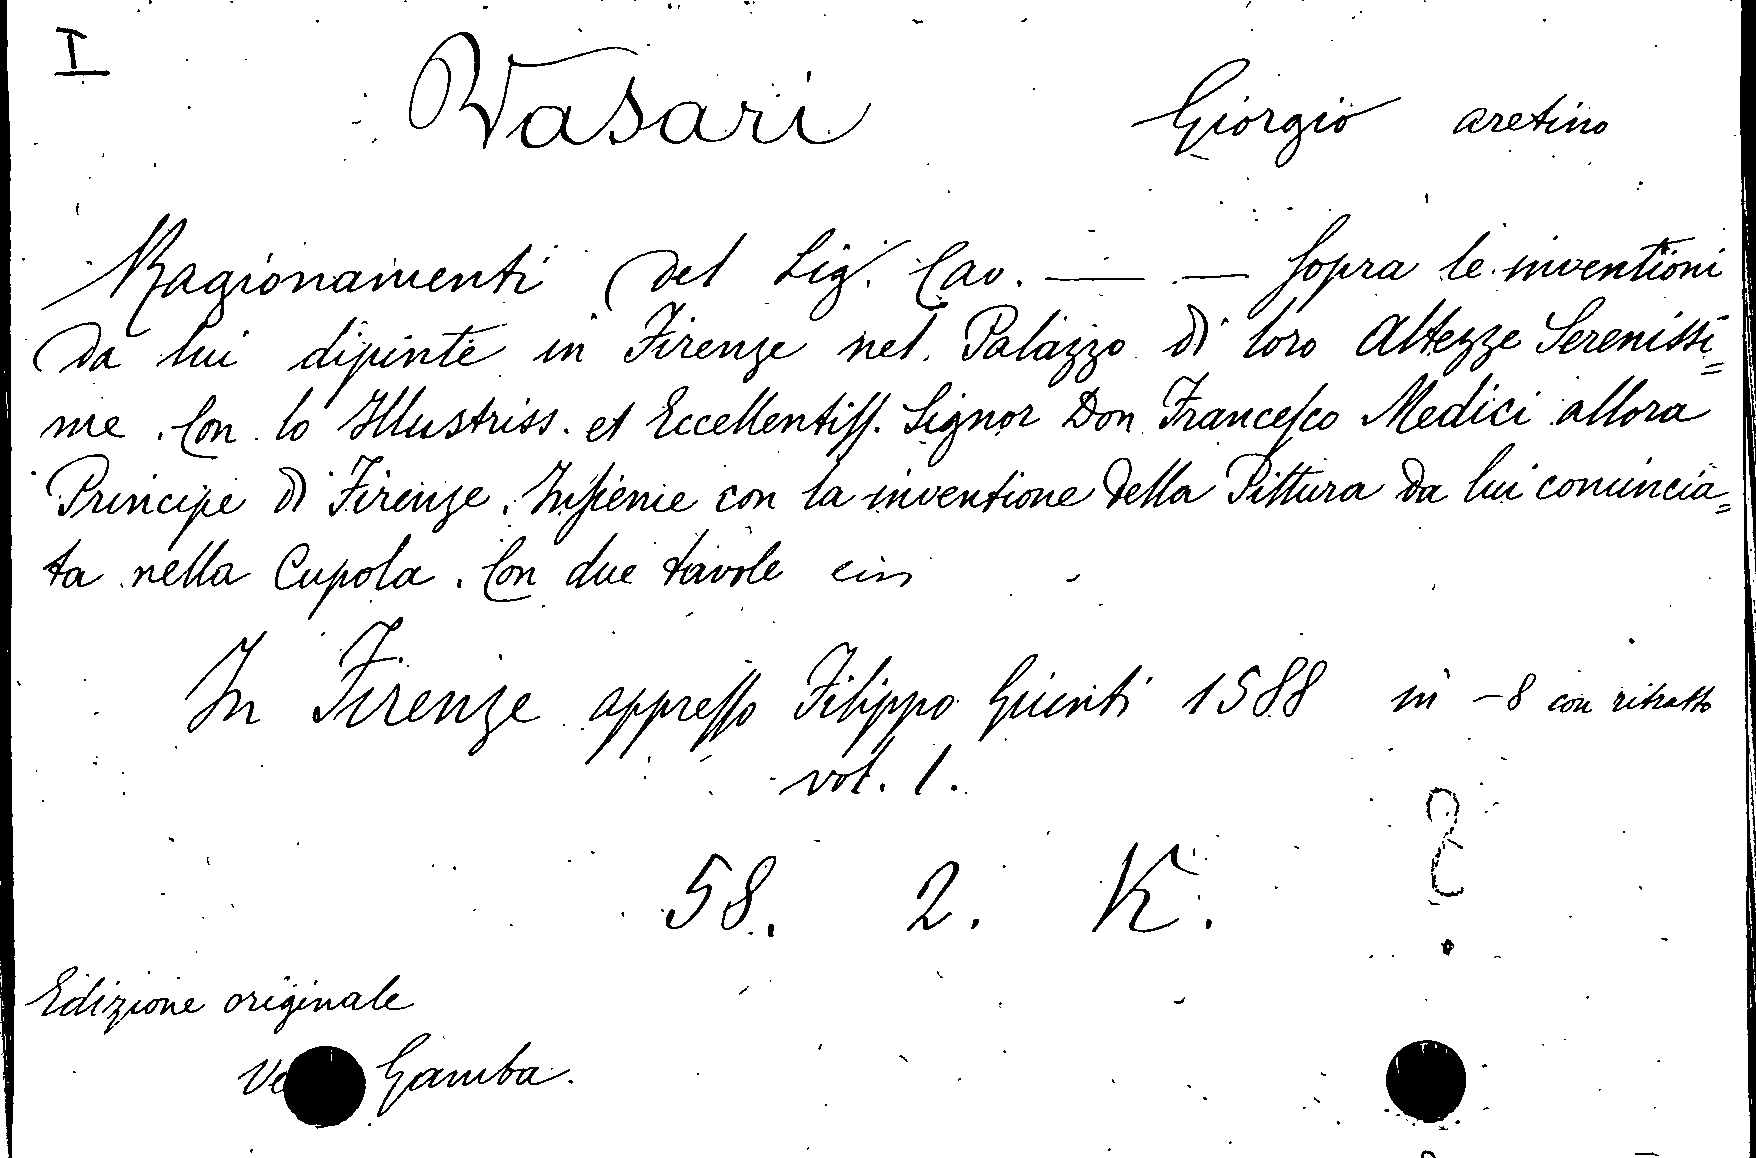 I
Vasari Giorgio aretino
Ragionamenti del Sig. Cav. — — sopra le inventioni
da lui dipinte in Firenze nel Palazzo di loro Altezze Serenissi=
me. Con lo Illustriss. et Eccellentiss. Signor Don Francesco Medici allora
Principe di Firenze. Insieme con la inventione della Pittura da lui comincia=
ta nella Cupola. Con due tavole
In Firenze appresso Filippo Giunti 1588 in -8 con ritratto
vol. 1.
?
58. 2. K.
Edizione originale
Gamba.